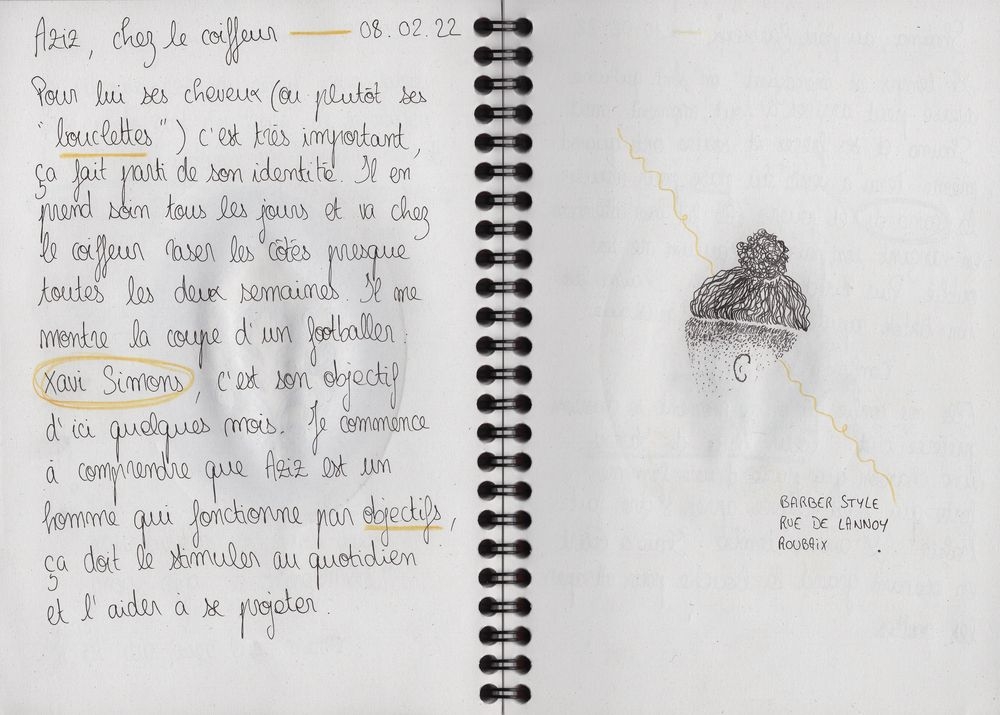 Aziz, chez le coiffeur — 08.02.22
Pour lui ses cheveux (ou plutôt ses
"bouclettes") c'est très important,
ça fait parti de son identité. Il en
prend soin tous les jours et va chez
le coiffeur raser les côtés presque
toutes les deux semaines. Il me
montre la coupe d'un footballer :
Xavi Simons, c'est son objectif
d'ici quelques mois. Je commence
à comprendre que Aziz est un
homme qui fonctionne par objectifs,
ça doit le stimuler au quotidien
et l'aider à se projeter.
BARBER STYLE
RUE DE LANNOY
ROUBAIX .